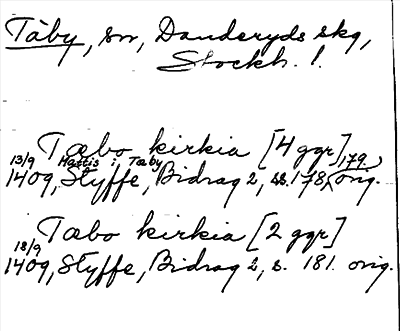 Täby, sn, Danderyds skg,
Stockh. l.
Tæbo kirkia [4 ggr]
13/9 Mattis i Tæby 179.
1409, Styffe, Bidrag 2, ss. 178, orig.
Tæbo kirkia [2 ggr]
18/9
1409, Styffe, Bidrag 2, s. 181. orig.